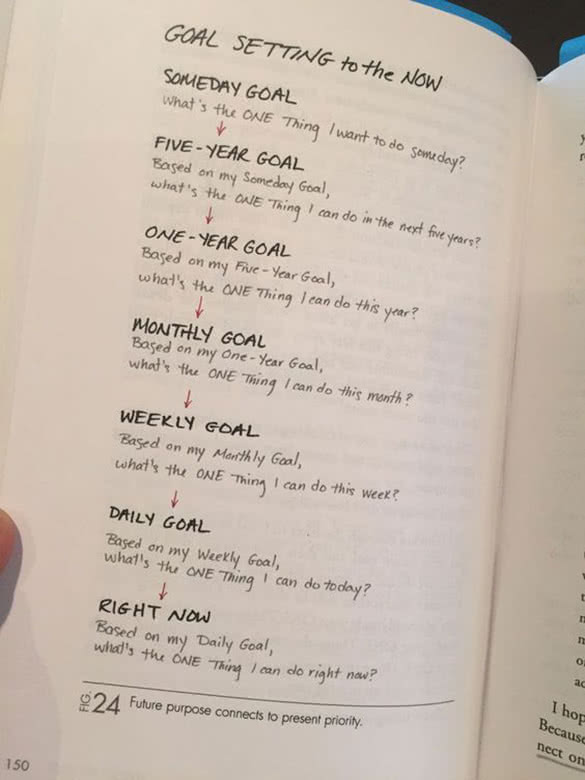 GOAL SETTING to the NOW
SOMEDAY GOAL
What's the ONE Thing I want to do someday?
FIVE-YEAR GOAL
Based on my Someday Goal,
what's the ONE Thing I can do in the next five years?
ONE-YEAR GOAL
Based on my Five-Year Goal,
what's the ONE Thing I can do this year?
MONTHLY GOAL
Based on my One-Year Goal,
what's the ONE Thing I can do this month?
WEEKLY GOAL
Based on my Monthly Goal,
what's the ONE Thing I can do this week?
DAILY GOAL
Based on my Weekly Goal,
what's the ONE Thing I can do today?
RIGHT NOW
Based on my Daily Goal,
what's the ONE Thing I can do right now?
FIG. 24 Future purpose connects to present priority.
150
I hop
Because
nect on